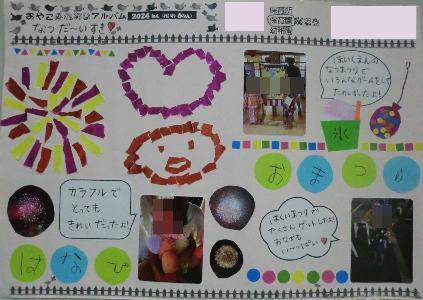 おやこみらいアルバム 2024
なつ だ〜いすき
保育所
保育園
幼稚園
ほいくえんの
なつまつりで
いろんなゲームをして
たのしかったよ!
氷
おまつり
カラフルで
とっても
きれいだったよ!
はなび
なつまつりで
たくさんゲットしたよ!
おなかも
い〜っぱい